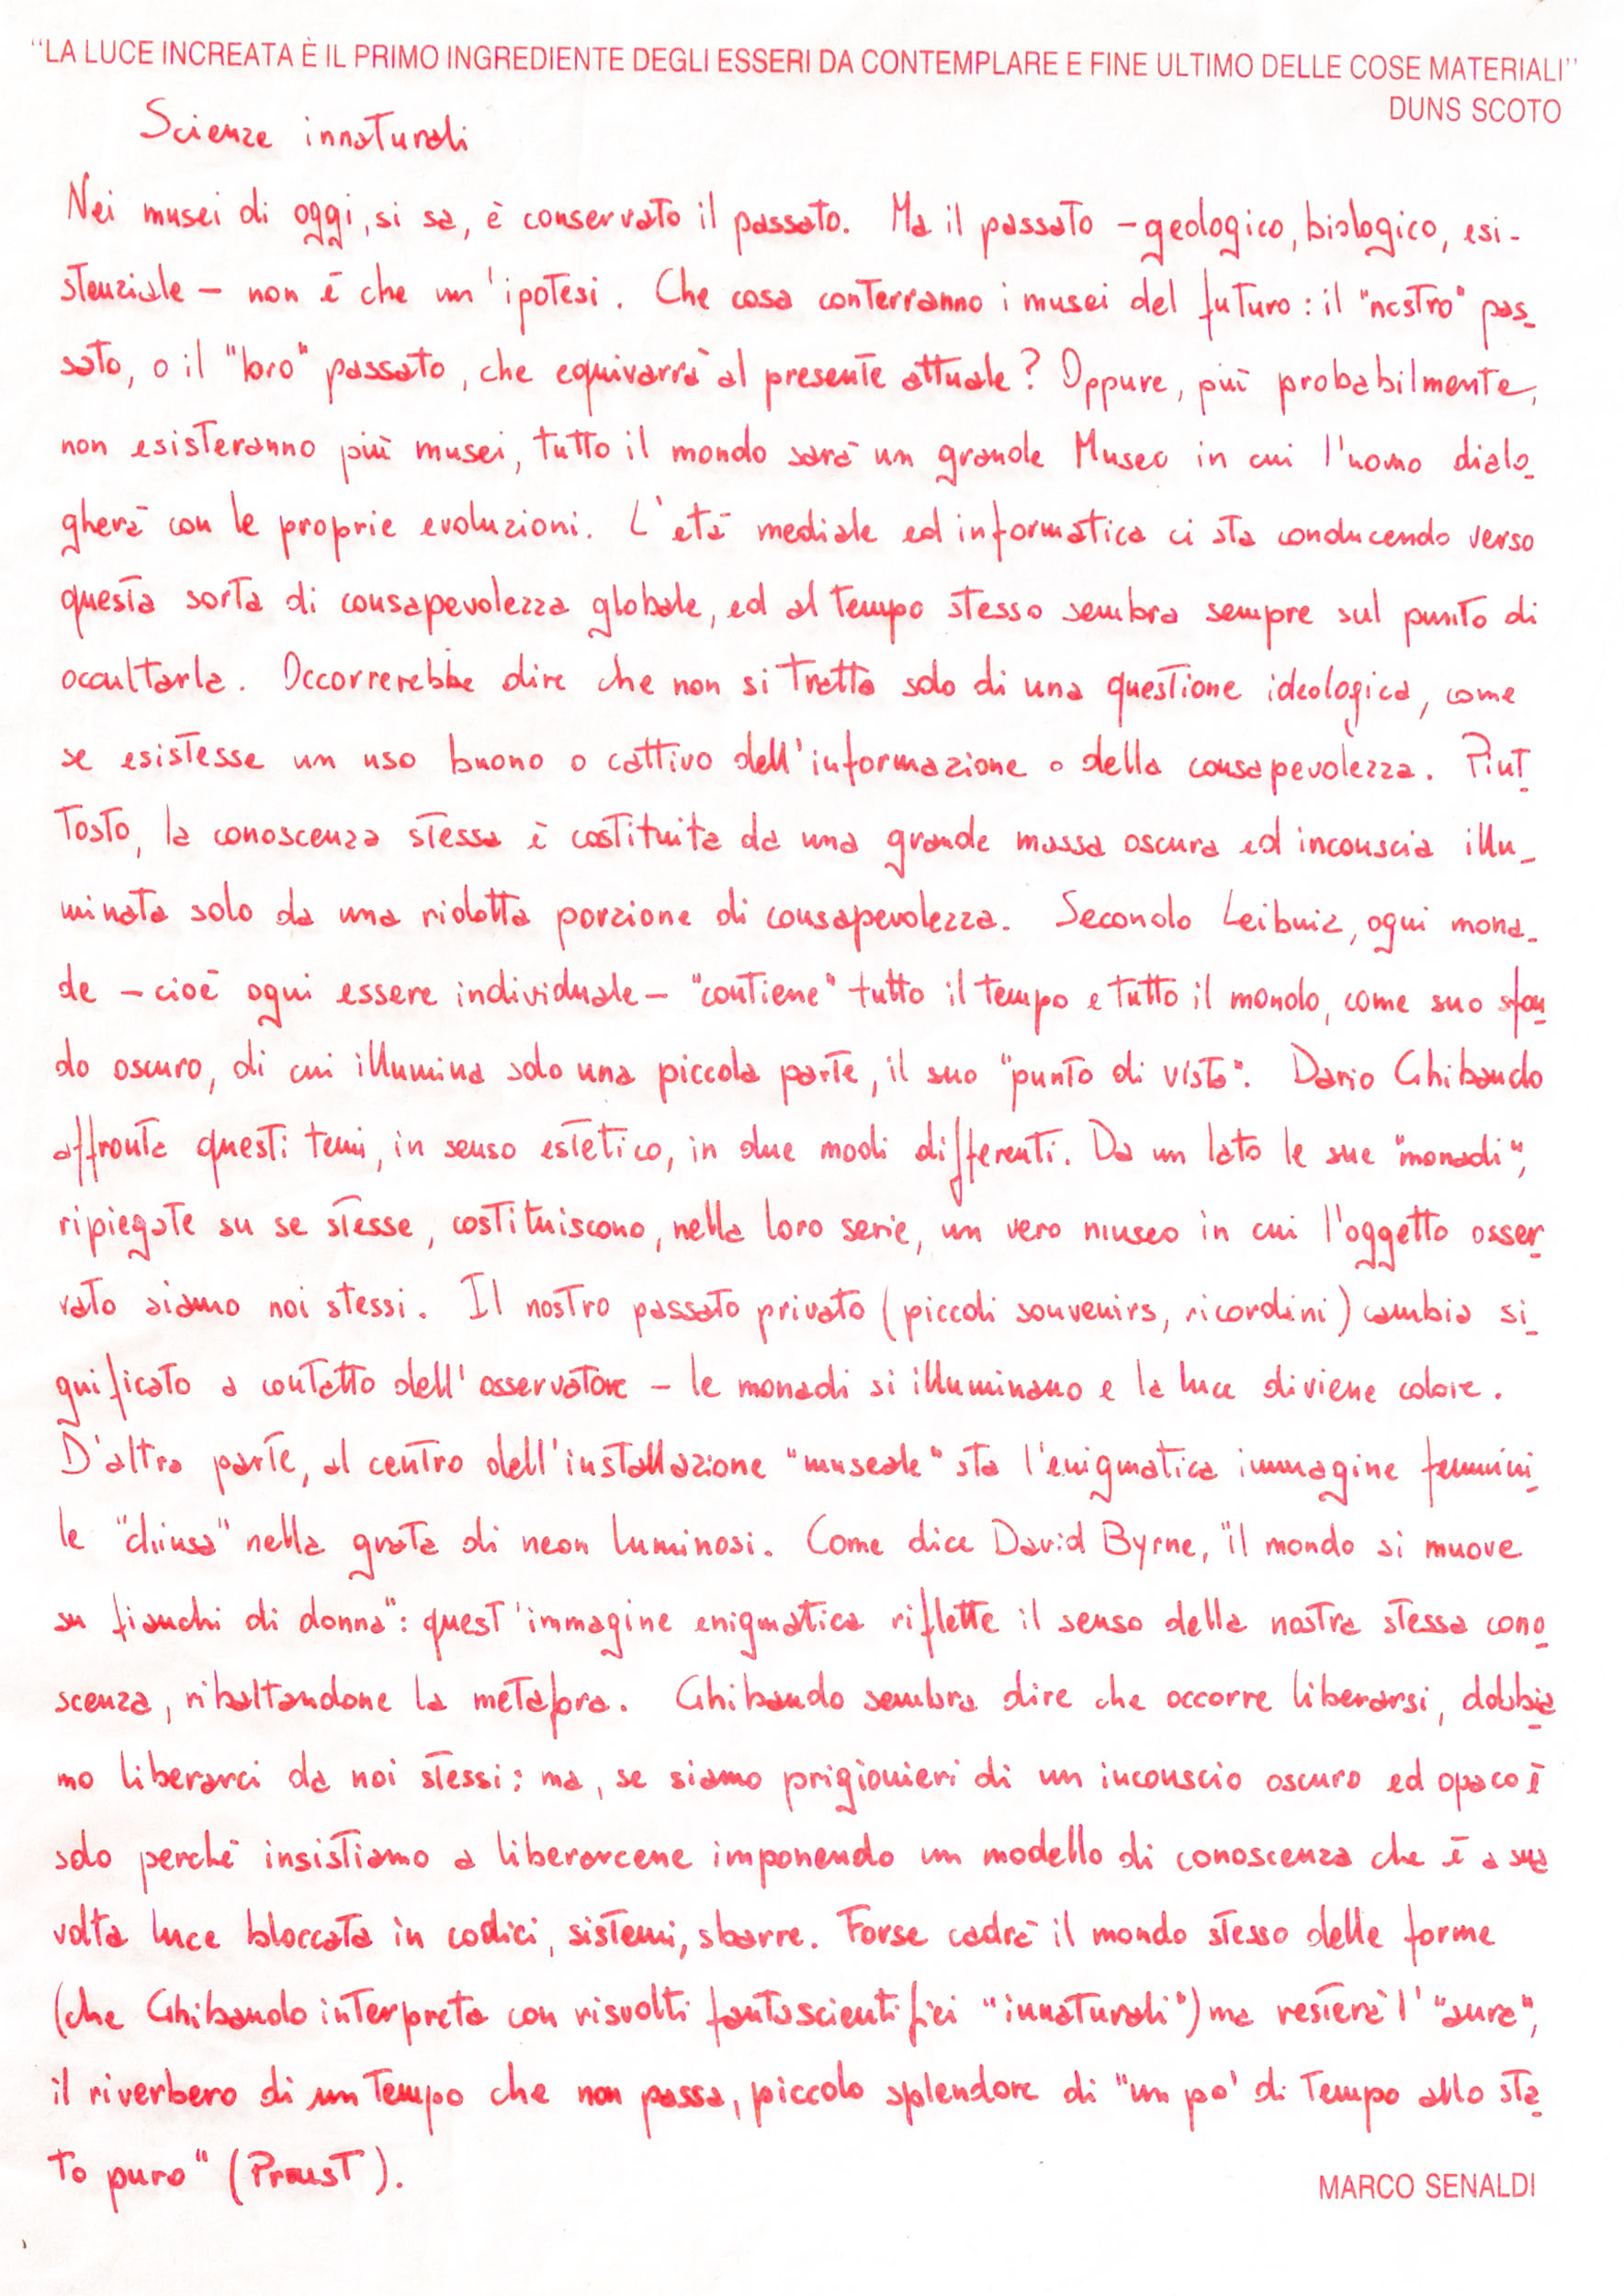 "LA LUCE INCREATA È IL PRIMO INGREDIENTE DEGLI ESSERI DA CONTEMPLARE E FINE ULTIMO DELLE COSE MATERIALI"
DUNS SCOTO
Scienze innaturali
Nei musei di oggi, si sa, è conservato il passato. Ma il passato – geologico, biologico, esi-
stenziale – non è che un'ipotesi. Che cosa conterranno i musei del futuro: il "nostro" pas-
sato, o il "loro" passato, che equivarrà al presente attuale? Oppure, più probabilmente,
non esisteranno più musei, tutto il mondo sarà un grande Museo in cui l'uomo dialo-
gherà con le proprie evoluzioni. L'età mediale ed informatica ci sta conducendo verso
questa sorta di consapevolezza globale, ed al tempo stesso sembra sempre sul punto di
occultarla. Occorrerebbe dire che non si tratta solo di una questione ideologica, come
se esistesse un uso buono o cattivo dell'informazione o della consapevolezza. Piut-
tosto, la conoscenza stessa è costituita da una grande massa oscura ed inconscia illu-
minata solo da una ridotta porzione di consapevolezza. Secondo Leibniz, ogni mona-
de – cioè ogni essere individuale – "contiene" tutto il tempo e tutto il mondo, come suo sfon-
do oscuro, di cui illumina solo una piccola parte, il suo "punto di vista". Dario Ghibaudo
affronta questi temi, in senso estetico, in due modi differenti. Da un lato le sue "monadi",
ripiegate su se stesse, costituiscono, nella loro serie, un vero museo in cui l'oggetto osser-
vato siamo noi stessi. Il nostro passato privato (piccoli souvenirs, ricordini) cambia si-
gnificato a contatto dell'osservatore – le monadi si illuminano e la luce diviene colore.
D'altra parte, al centro dell'installazione "museale" sta l'enigmatica immagine femmini-
le "chiusa" nella grata di neon luminosi. Come dice David Byrne, "il mondo si muove
su fianchi di donna": quest'immagine enigmatica riflette il senso della nostra stessa cono-
scenza, ribaltandone la metafora. Ghibaudo sembra dire che occorre liberarsi, dobbia-
mo liberarci da noi stessi: ma, se siamo prigionieri di un inconscio oscuro ed opaco è
solo perchè insistiamo a liberarcene imponendo un modello di conoscenza che è a sua
volta luce bloccata in codici, sistemi, sbarre. Forse cadrà il mondo stesso delle forme
(che Ghibaudo interpreta con risvolti fantascientifici "innaturali") ma resterà l'"aura",
il riverbero di un Tempo che non passa, piccolo splendore di "un po' di Tempo allo sta-
to puro" (Proust).
MARCO SENALDI